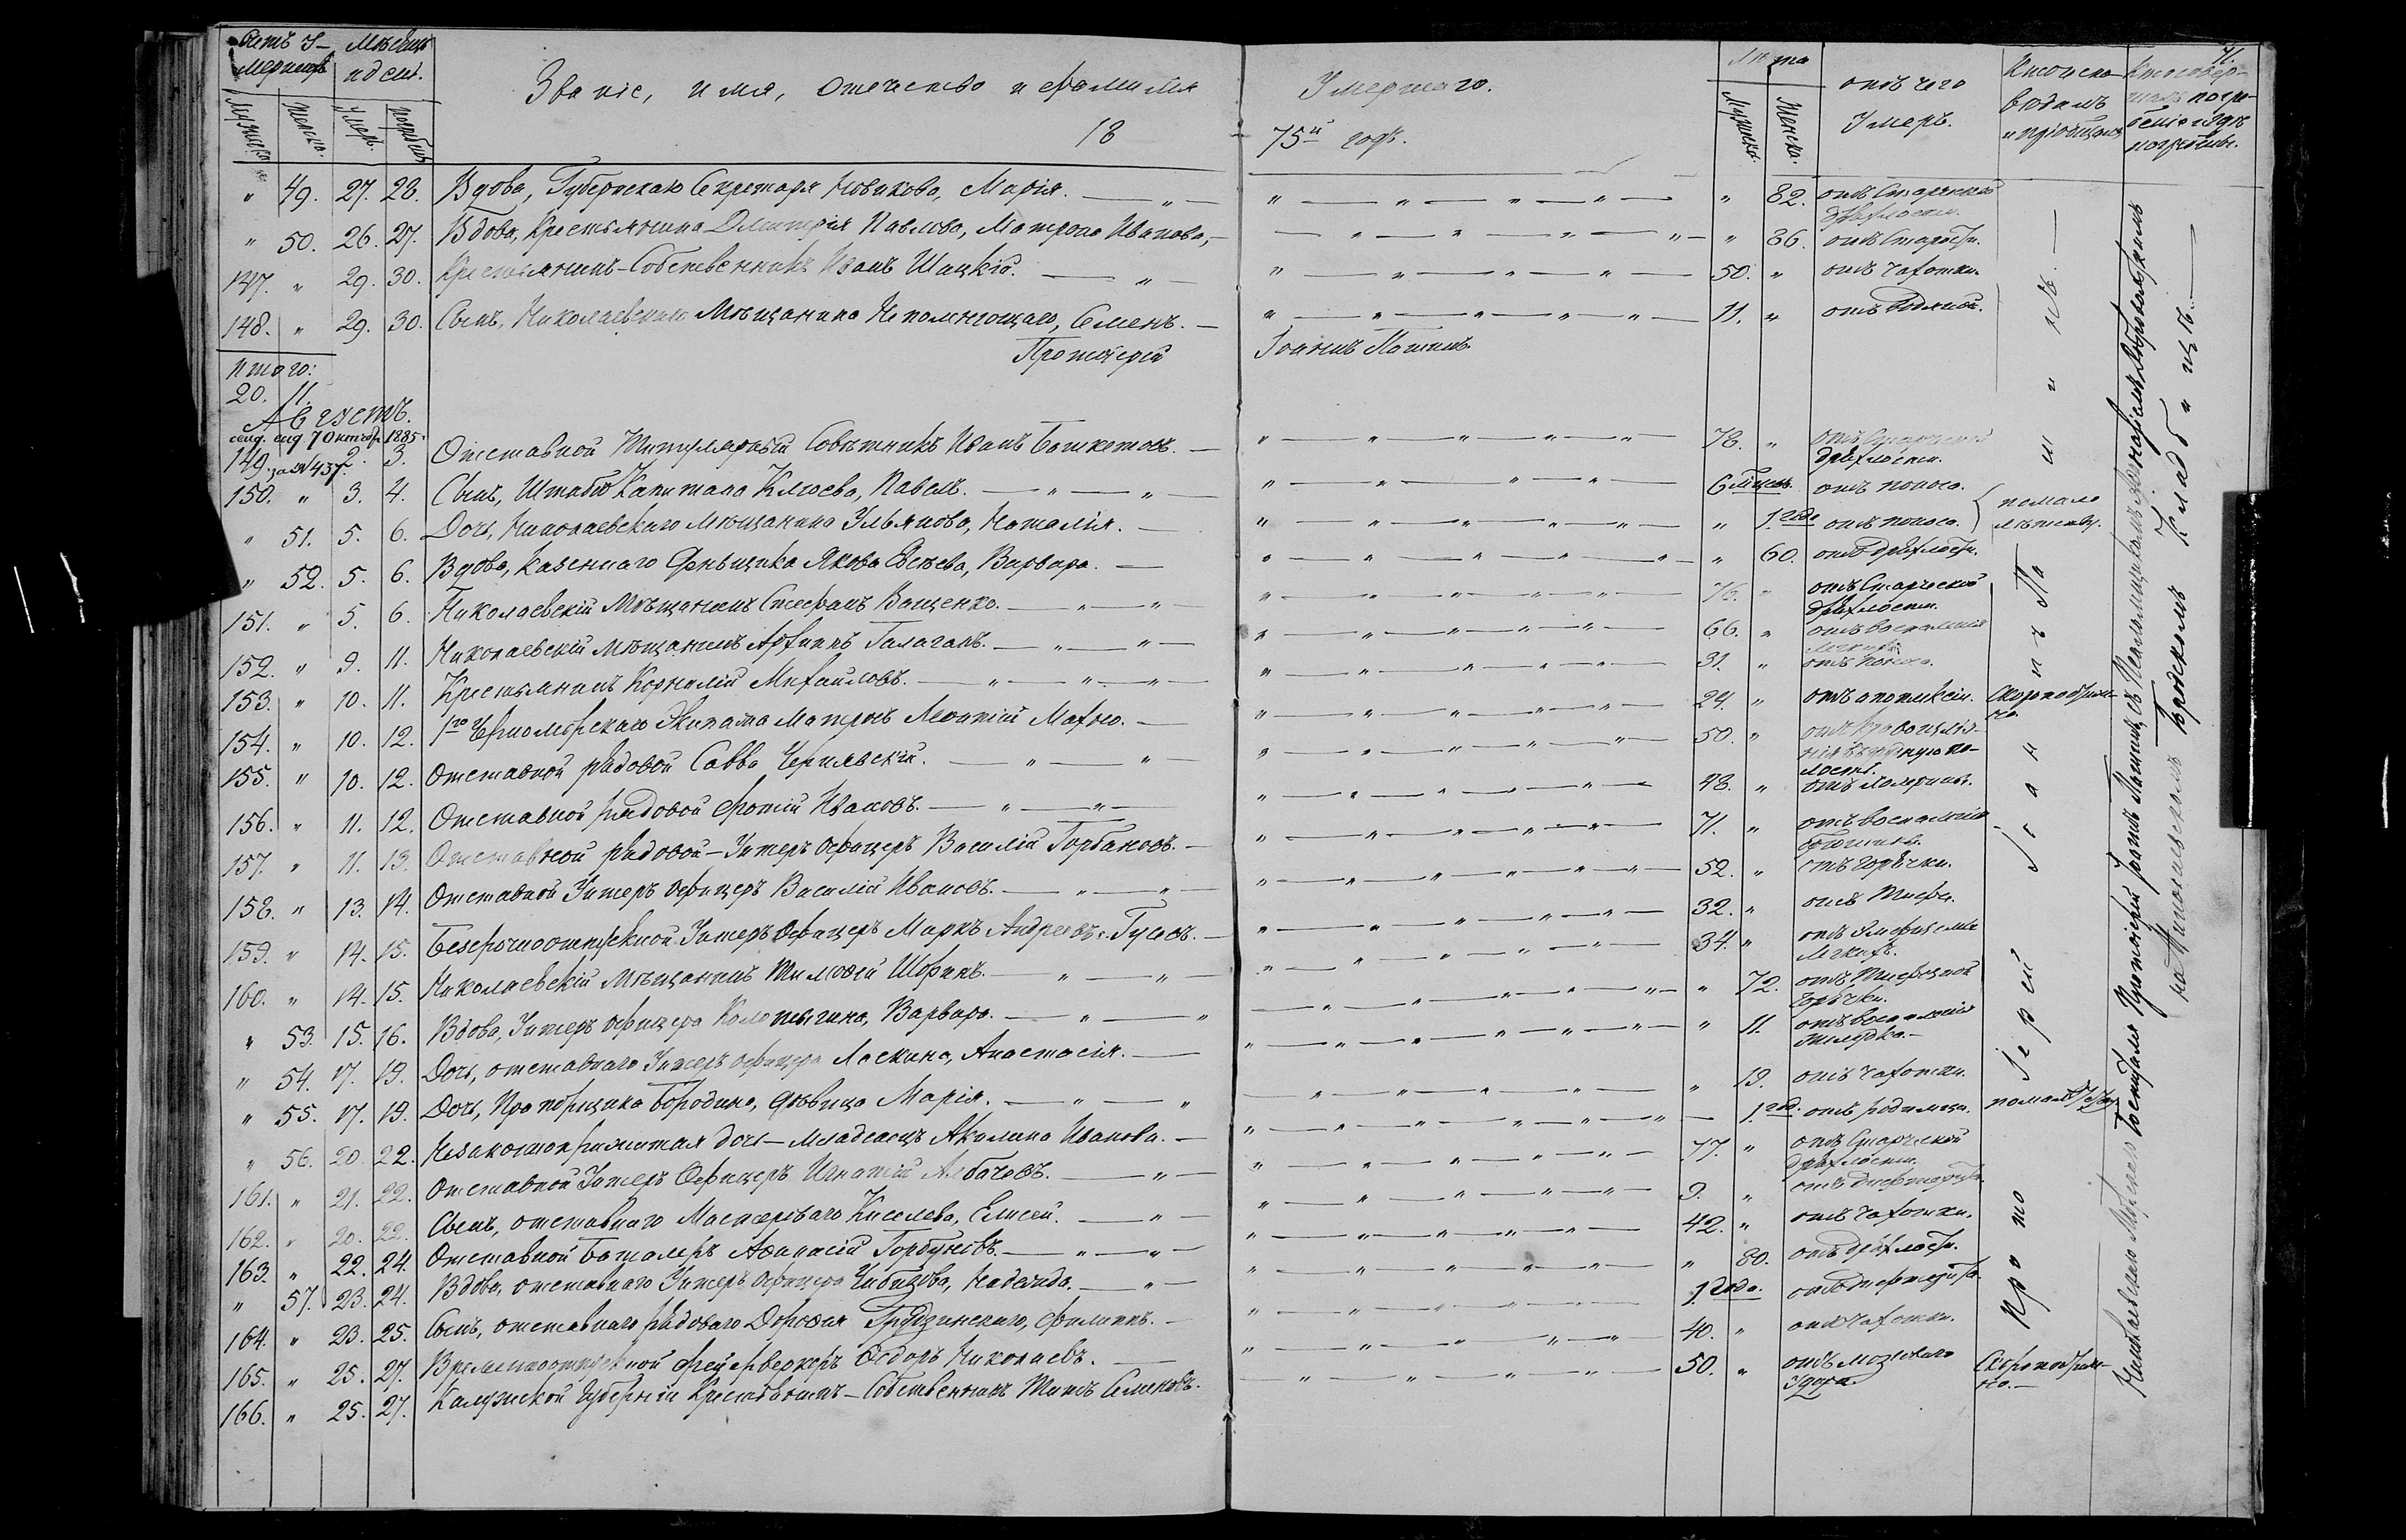 71.
Счетъ У-мершихъ Мѣсяцъ и день. Званіе, имя, отечество и фамилія Умершаго. Лѣта отъ чего Умеръ. Кто исповѣдалъ и пріобщалъ Кто совершалъ погребеніе и гдѣ погребены.
Мужеска Женска. Умеръ. погребенъ Мужска. Женска.
18 75й годъ.
" 49. 27. 28. Вдова, Губернскаго Секретаря Новикова, Марія. " 82. отъ Старческой дряхлости.
" 50. 26. 27. Вдова, Крестьянина Дмитрія Павлова, Матрона Иванова, " 86. отъ Старости.
147. " 29. 30. Крестьянинъ-Собственникъ Иванъ Шицкій. 50. " отъ чахотки.
148. " 29. 30. Сынъ, Николаевскаго Мѣщанина Непомнющаго, Семенъ. 11. " отъ водяной.
Протоіерей Іоаннъ
Итого:
20. 11.
Августъ.
7 Октябр. 1885.
за № 437.
149. 2. 3. Отставной Титулярный Совѣтникъ Иванъ Башкетовъ. 78. " отъ Старческой дряхлости.
150. " 3. 4. Сынъ, Штабсъ Капитана Клюева, Павелъ. 6 мѣсяц. отъ поноса.
" 51. 5. 6. Дочь, Николаевскаго мѣщанина Ульянова, Наталія. " 1. года отъ поноса. по мало лѣтству.
" 52. 5. 6. Вдова, казеннаго Деньщика Якова Евсѣева, Варвара. " 60. отъ дряхлости.
151. " 5. 6. Николаевскій Мѣщанинъ Стефанъ Ващенко. 76. " отъ Старческой дряхлости.
152. " 9. 11. Николаевскій мѣщанинъ Архипъ Галаганъ. 66. " отъ воспаленія легкихъ.
153. " 10. 11. Крестьянинъ Корнилій Михайловъ. 31. " отъ поноса.
154. " 10. 12. 1го Черноморскаго Экипажа Матросъ Леонтій Махно. 24. " отъ апоплексіи. Скоропостижно.
155. " 10. 12. Отставной рядовой Савва Чернявскій. 50. "
156. " 11. 12. Отставной рядовой Фотій Ивановъ. 48. "
157. " 11. 13. Отставной рядовой-Унтеръ офицеръ Василій Горбановъ. 71. " отъ воспаленія брюшины.
158. " 13. 14. Отставной Унтеръ офицеръ Василій Ивановъ. 52. " отъ горячки.
159. " 14. 15. Безсрочноотпускной Унтеръ Офицеръ Маркъ Андреевъ Гусевъ. 32. " отъ Тифа.
160. " 14. 15. Николаевскій Мѣщанинъ Тимофей Шоринъ. 34. " отъ Эмфиземы легкихъ.
" 53. 15. 16. Вдова, Унтеръ офицера Коломыгина, Варвара. " 72. отъ Тифозной горячки.
" 54. 17. 19. Дочь, отставнаго Унтеръ офицера Ласкина, Анастасія. " 11. отъ воспаленія Желудка.
" 55. 17. 19. Дочь, Прапорщика Бородина, дѣвица Марія. " 19. отъ чахотки.
" 56. 20. 22. Незаконноприжитая дочь-младенецъ Акилина Иванова. 1. год. отъ родимца. по
161. " 21. 22. Отставной Унтеръ Офицеръ Игнатій Лябачевъ. 77. " отъ Старческой дряхлости.
162. " 20. 22. Сынъ, отставнаго Мастероваго Киселева, Елисей. 9. " отъ дифтерита.
163. " 22. 24. Отставной Баталеръ Афанасій Горбуновъ. 42. " отъ чахотки.
" 57. 23. 24. Вдова, отставнаго Унтеръ офицера Чибизова, Надежда. " 80. отъ дряхлости.
164. " 23. 25. Сынъ, отставнаго рядоваго Дорофея Грудзинскаго, Филиппъ. 1. года. отъ дифтерита.
165. " 25. 27. Временноотпускной фейерверкеръ Федоръ Николаевъ. 40. " отъ чахотки.
166. " 25. 27. Калужской Губерніи Крестьянинъ-Собственникъ Титъ Семеновъ. 50. " отъ мозговаго Удара. Скоропостижно.
Протоіерей Іоаннъ
Николаевскаго Морскаго Госпиталя Протоіерей Іоаннъ съ Псаломщикомъ
на Николаевскомъ Городскомъ Кладбищѣ.